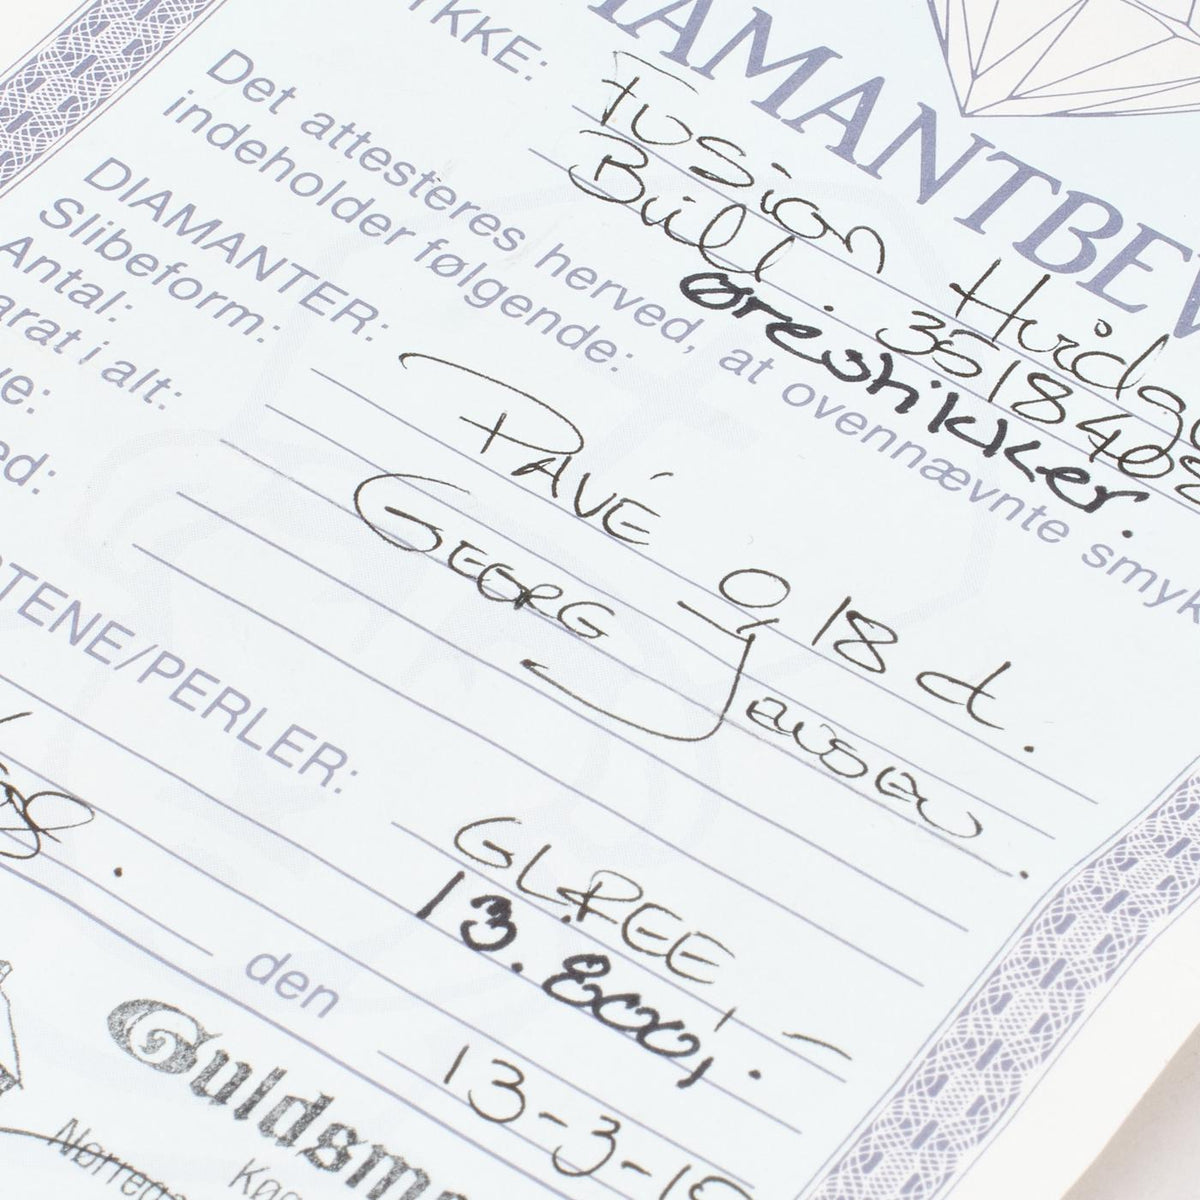 YKKE: Fusion Hvidg
IAMANTBEV
Bull. 3518408
ørestikker.
Det attesteres herved, at ovennævnte smyk
indeholder følgende:
DIAMANTER:
Slibeform: PAVÉ
Antal:
arat i alt: 0,18 ct.
ve: GEORG Jensen.
ed:
STENE/PERLER:
GLREE
13.800,-.
den 13-3-
Guldsm
Nørrega
Køg